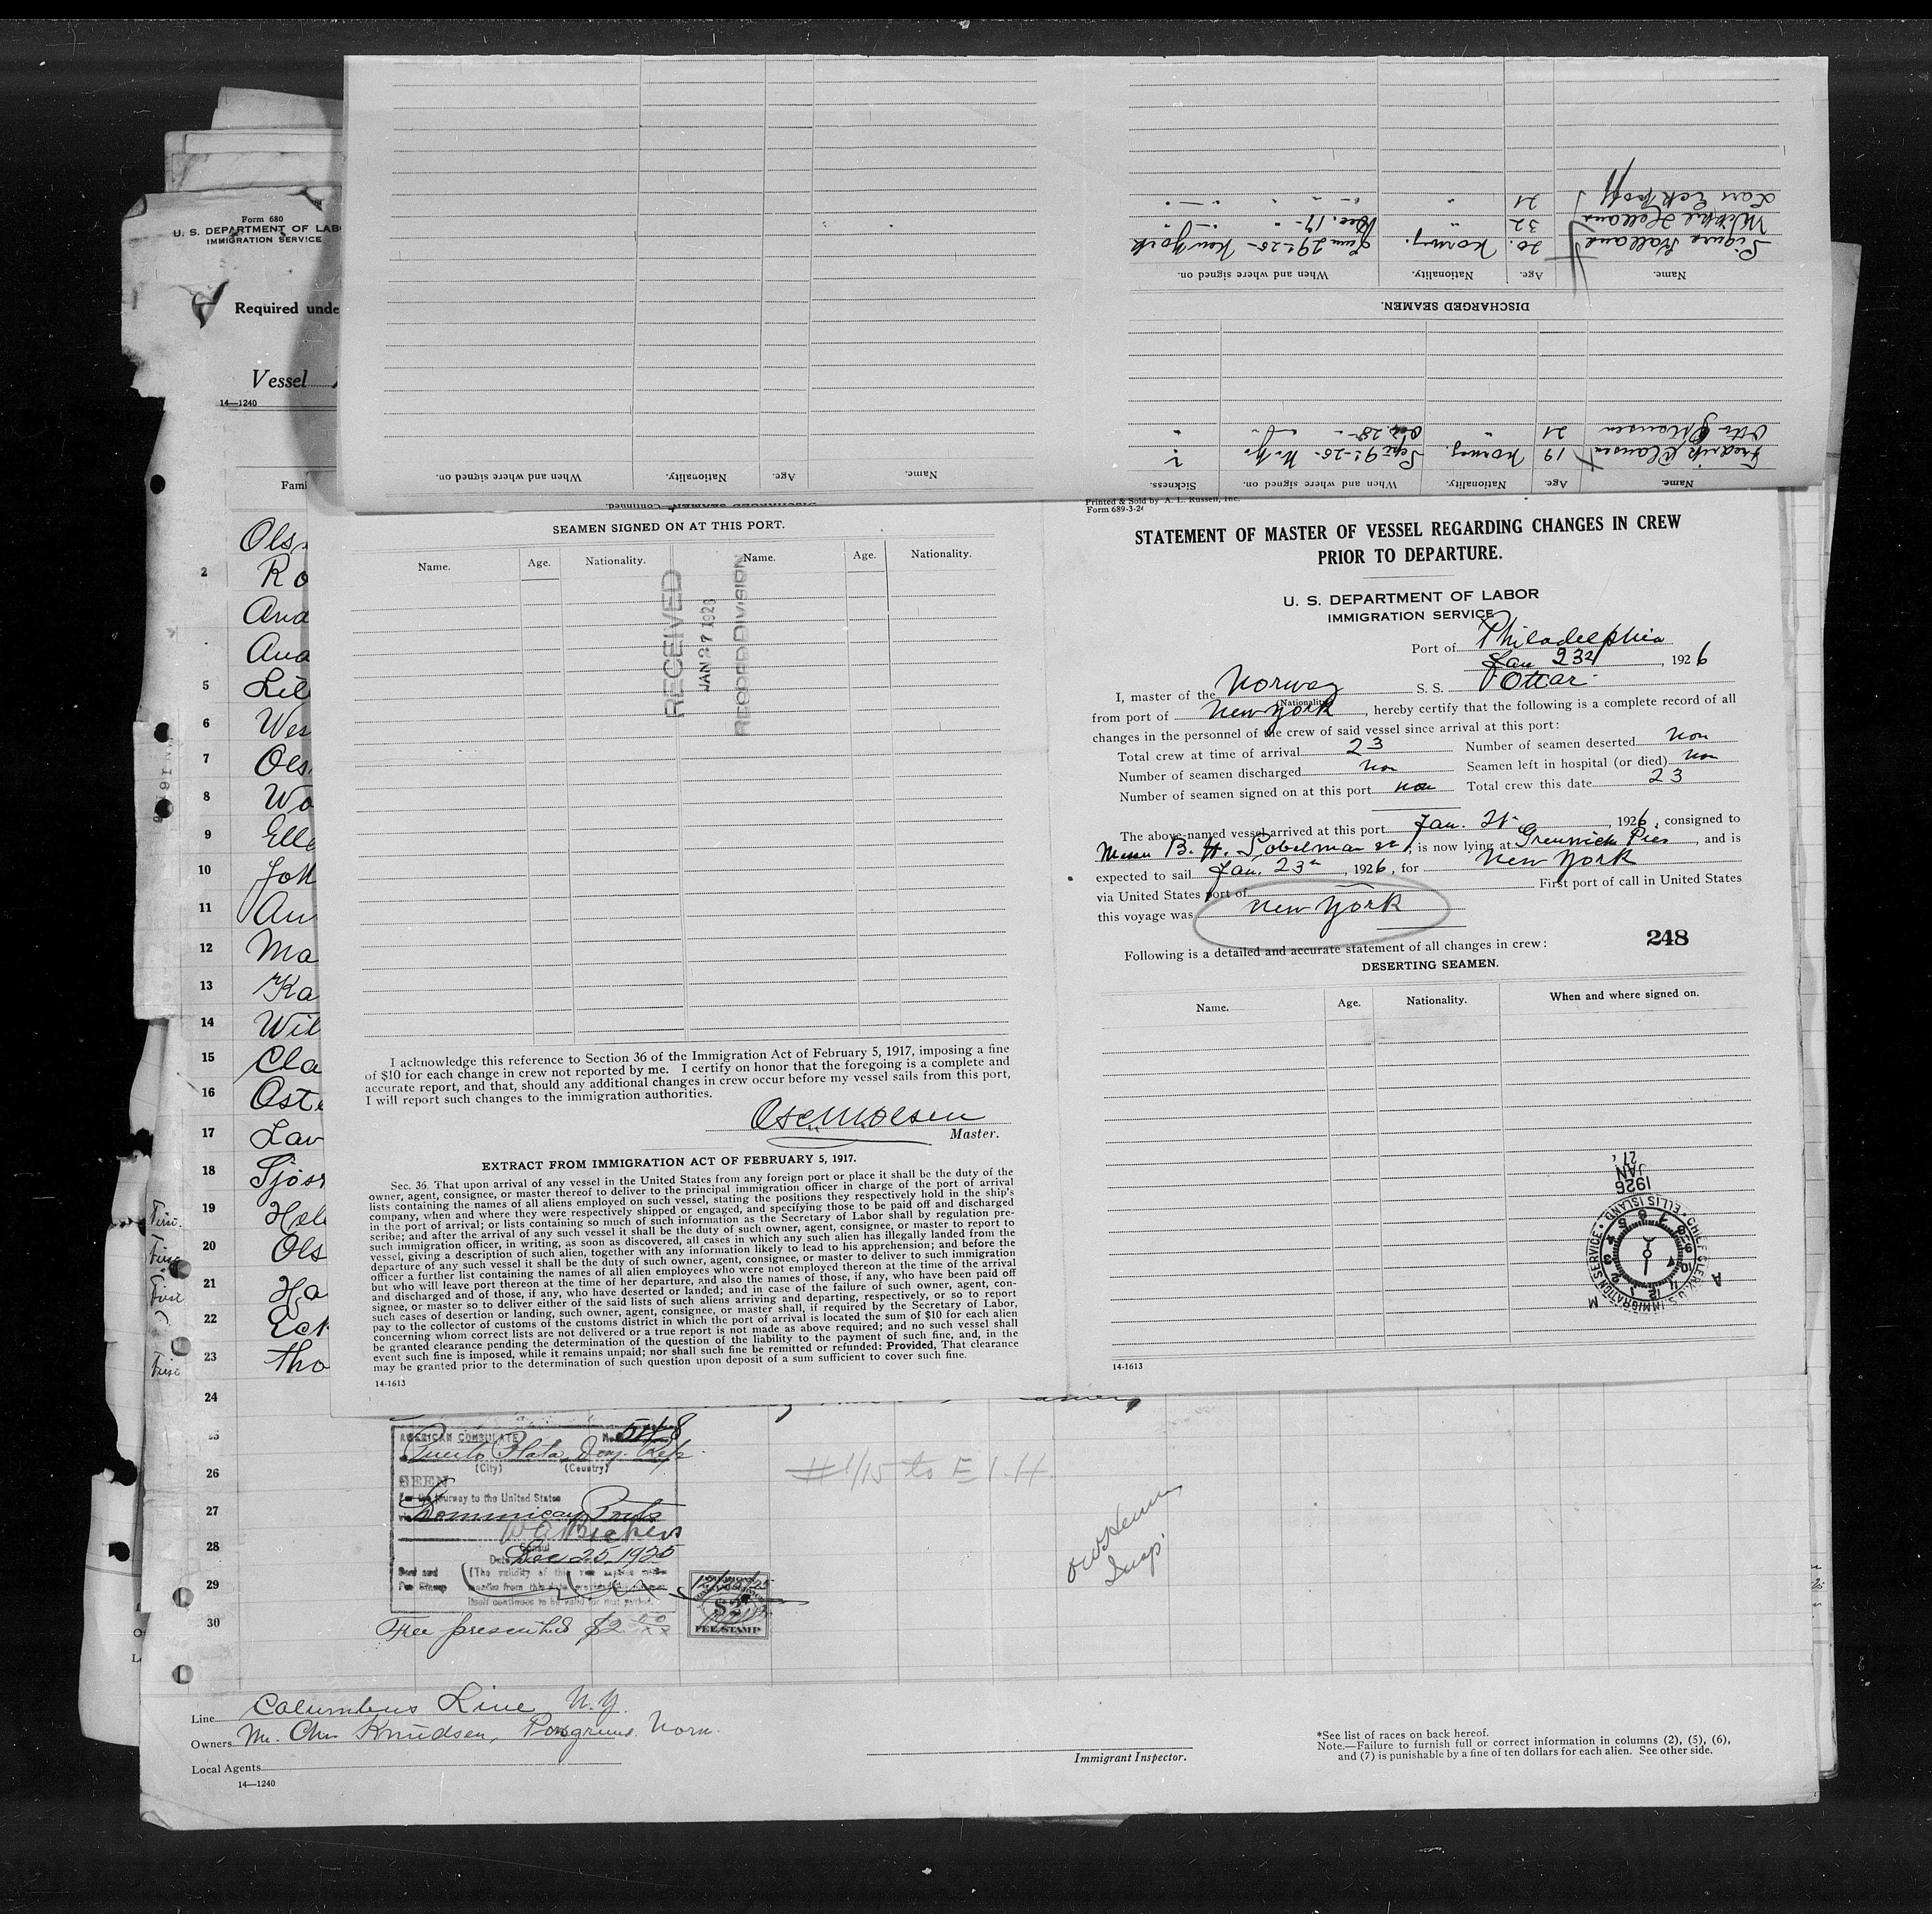 Form 680
U. S. DEPARTMENT OF LAB
IMMIGRATION SERVICE
Required unde
Vessel
14—1240
Fami
Ols
2 Ro
And
And
5 Lil
6 Wes
7 Ols
8 Wo
9 Elle
10 Joh
11 An
12 Ma
13 Ka
14 Wil
15 Cla
16 Oste
17 Lar
18 Sjos
19 Hel
20 Ols
21 Ha
22 Eck
23 Tho
24
25
26
27
28
29
30
Name. Age. Nationality. When and where signed on.
Name. Age. Nationality. When and where signed on. Sickness.
Fredrik Clausen 19 Norway. Sept 9-25- N.Y.
Otto Johansen 21 " 28-
DISCHARGED SEAMEN.
Name. Age. Nationality. When and where signed on.
Sigurd Halland 20. Norway. 29-25- New York
32 " Dec. 17-
Lars Eckhoff 21 "
DISCHARGED SEAMEN—Continued
SEAMEN SIGNED ON AT THIS PORT.
Name. Age. Nationality. Name. Age. Nationality.
RECEIVED
JAN 27 1926
RECORD DIVISION
I acknowledge this reference to Section 36 of the Immigration Act of February 5, 1917, imposing a fine
of $10 for each change in crew not reported by me. I certify on honor that the foregoing is a complete and
accurate report, and that, should any additional changes in crew occur before my vessel sails from this port,
I will report such changes to the immigration authorities.
Master.
EXTRACT FROM IMMIGRATION ACT OF FEBRUARY 5, 1917.
Sec. 36. That upon arrival of any vessel in the United States from any foreign port or place it shall be the duty of the
owner, agent, consignee, or master thereof to deliver to the principal immigration officer in charge of the port of arrival
lists containing the names of all aliens employed on such vessel, stating the positions they respectively hold in the ship's
company, when and where they were respectively shipped or engaged, and specifying those to be paid off and discharged
in the port of arrival; or lists containing so much of such information as the Secretary of Labor shall by regulation pre-
scribe; and after the arrival of any such vessel it shall be the duty of such owner, agent, consignee, or master to report to
such immigration officer, in writing, as soon as discovered, all cases in which any such alien has illegally landed from the
vessel, giving a description of such alien, together with any information likely to lead to his apprehension; and before the
departure of any such vessel it shall be the duty of such owner, agent, consignee, or master to deliver to such immigration
officer a further list containing the names of all alien employees who were not employed thereon at the time of the arrival
but who will leave port thereon at the time of her departure, and also the names of those, if any, who have been paid off
and discharged and of those, if any, who have deserted or landed; and in case of the failure of such owner, agent, con-
signee, or master so to deliver either of the said lists of such aliens arriving and departing, respectively, or so to report
such cases of desertion or landing, such owner, agent, consignee, or master shall, if required by the Secretary of Labor,
pay to the collector of customs of the customs district in which the port of arrival is located the sum of $10 for each alien
concerning whom correct lists are not delivered or a true report is not made as above required; and no such vessel shall
be granted clearance pending the determination of the question of the liability to the payment of such fine, and, in the
event such fine is imposed, while it remains unpaid; nor shall such fine be remitted or refunded: Provided, That clearance
may be granted prior to the determination of such question upon deposit of a sum sufficient to cover such fine.
14-1613
Printed & Sold by A. L. Russell, Inc.
Form 689-3-24
STATEMENT OF MASTER OF VESSEL REGARDING CHANGES IN CREW
PRIOR TO DEPARTURE.
U. S. DEPARTMENT OF LABOR
IMMIGRATION SERVICE
Port of Philadelphia
Jan 23d, 1926
I, master of the Norway S. S. Ottar
(Nationality)
from port of New York, hereby certify that the following is a complete record of all
changes in the personnel of the crew of said vessel since arrival at this port:
Total crew at time of arrival 23 Number of seamen deserted non
Number of seamen discharged non Seamen left in hospital (or died) non
Number of seamen signed on at this port non Total crew this date 23
The above-named vessel arrived at this port Jan. 21, 1926, consigned to
Messrs B. H. Sobelman, is now lying at Greenwich Pier, and is
expected to sail Jan. 23d, 1926, for New York
via United States port of First port of call in United States
this voyage was New York
248
Following is a detailed and accurate statement of all changes in crew:
DESERTING SEAMEN.
Name. Age. Nationality. When and where signed on.
1926 JAN 27
CHIEF CLERK U.S. IMMIGRATION SERVICE • ELLIS ISLAND
14-1613
AMERICAN CONSULATE No. 548
Puerto Plata, Dom. Rep.
(City) (Country)
SEEN
For the journey to the United States
via Dominican Ports
W A Bickers
Consul
Date Dec 25, 1925
Seal and (The validity of this
Fee Stamp months from this date
itself continues to be valid for that period.
$2
FEE STAMP
Fee prescribed $2 50/xx
#1/15 to E I. H.
Insp.
Line Columbus Line N.Y.
Owners Mr. Chr Knudsen, Porsgrund. Norw.
Local Agents
14—1240
Immigrant Inspector.
*See list of races on back hereof.
Note.—Failure to furnish full or correct information in columns (2), (5), (6),
and (7) is punishable by a fine of ten dollars for each alien. See other side.